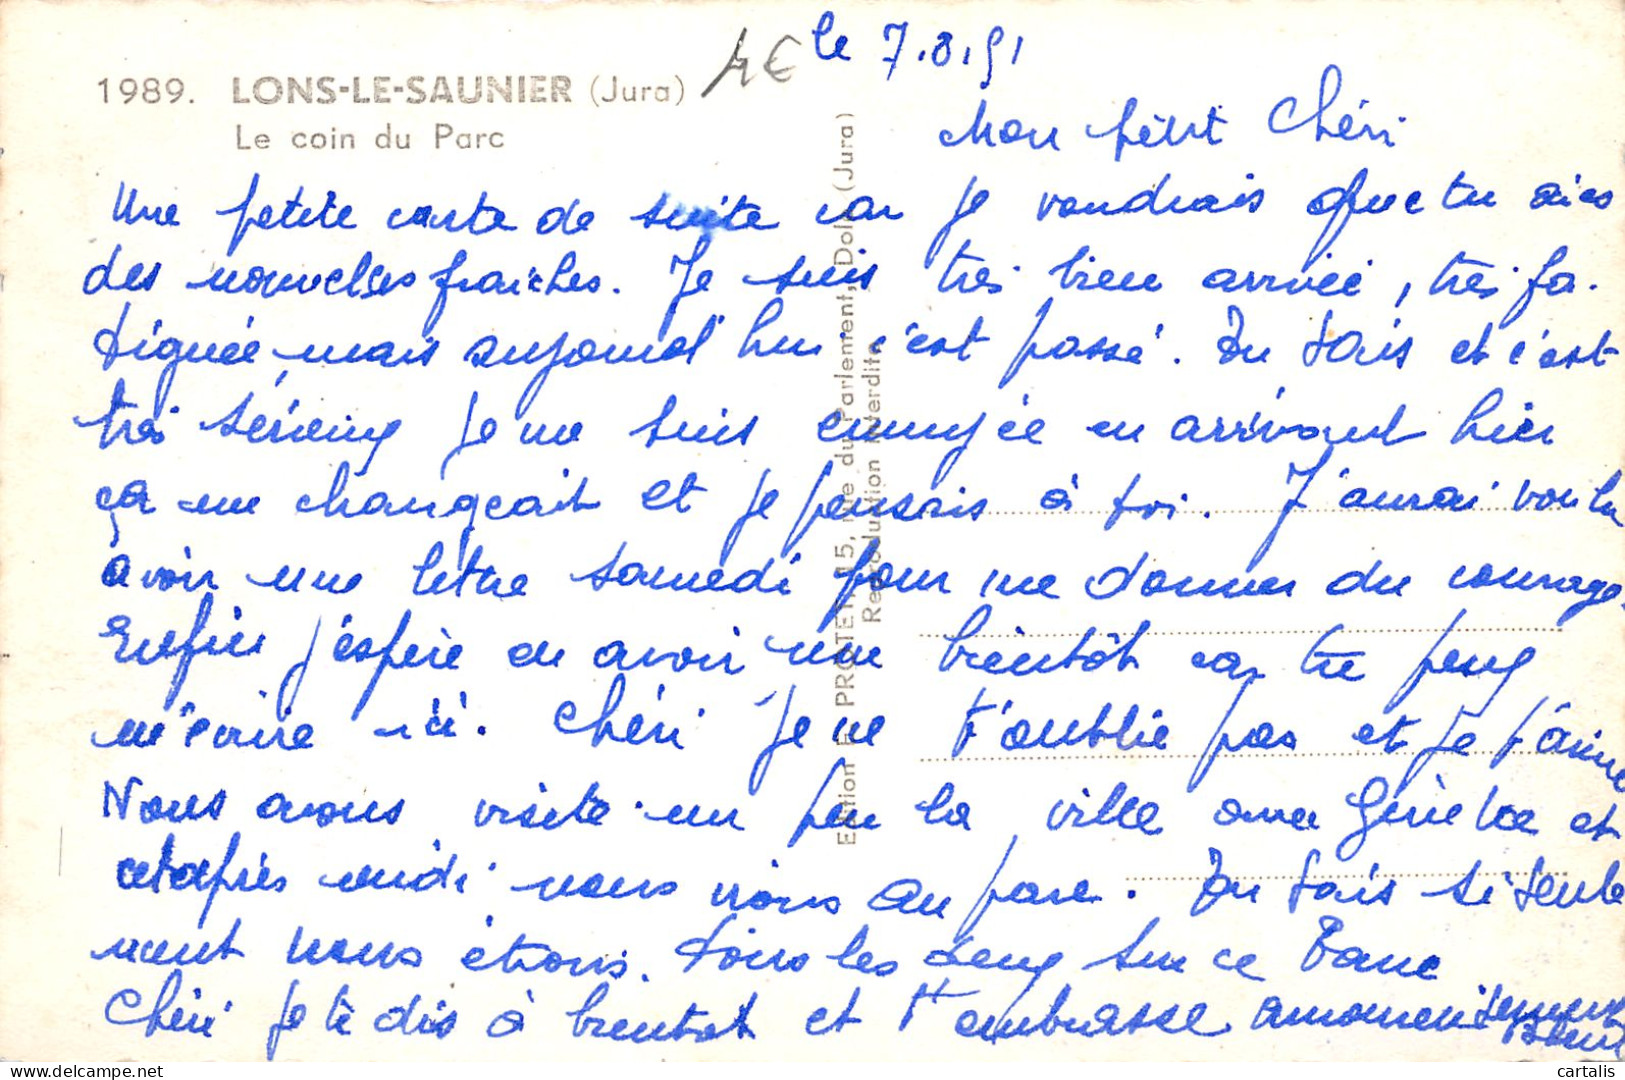 1989. LONS-LE-SAUNIER (Jura)
Le coin du Parc
4€
le 7.8.51
Mon petit Chéri
Une petite carte de suite car je voudrais que tu aies
des nouvelles fraiches. Je suis très bien arrivée, très fa-
tiguée mais aujourd'hui c'est passé. Tu sais et c'est
très sérieux je me suis ennuyée en arrivant hier
ça me changeait et je pensais à toi. J'aurai voulu
avoir une lettre samedi pour me donner du courage.
Enfin j'espère en avoir une bientôt car tu peux
m'écrire ici. Chéri je ne t'oublie pas et je t'aime
Nous avons visité un peu la ville avec et
après midi nous irons au parc. Tu sais si seule
ment nous étions tous les deux sur ce banc
Chéri je te dis à bientôt et t'embrasse amoureusement
Edition E. PROTET, 15, rue du Parlement, Dole (Jura)
Reproduction Interdite
cartalis